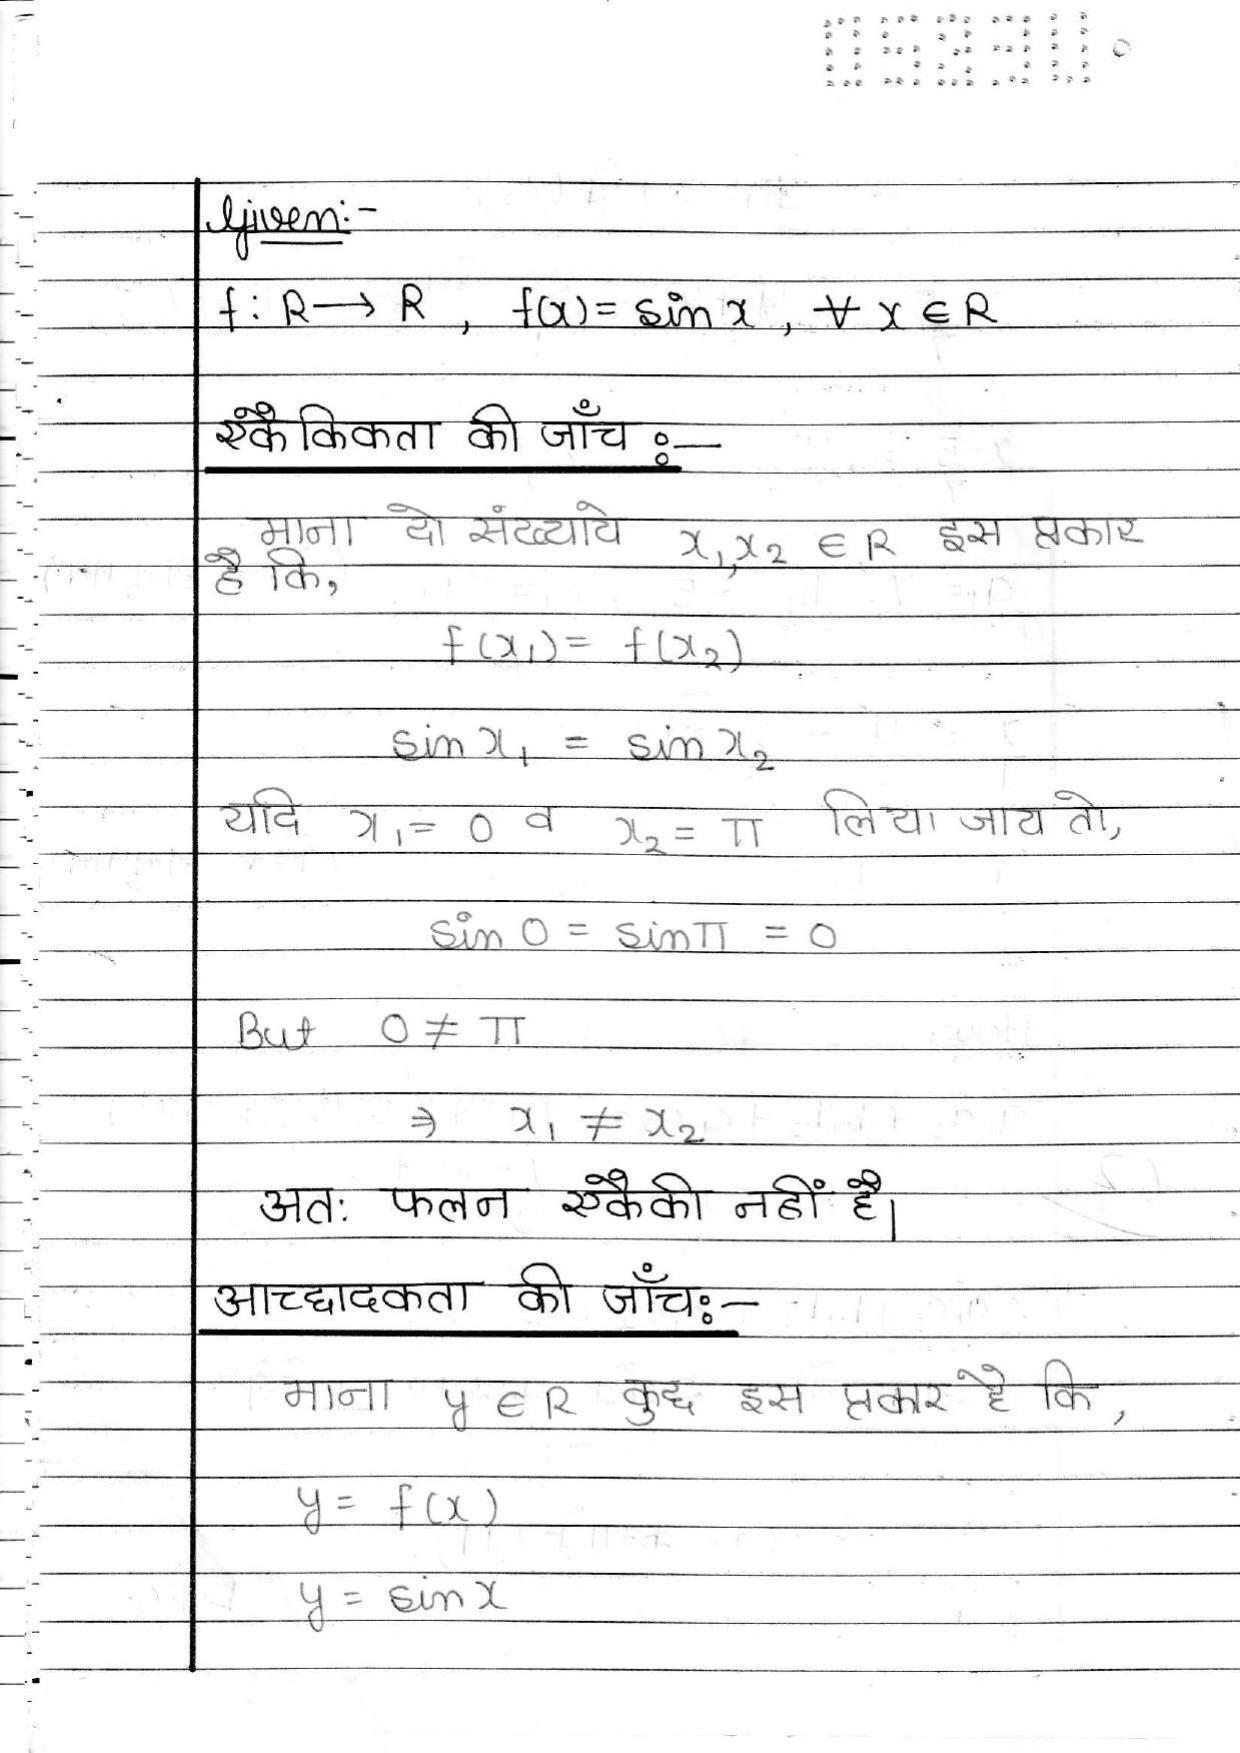 Given:-
f: R → R, f(x) = sin x, ∀ x ∈ R
एकैकिकता की जाँच :-
माना दो संख्याये x₁, x₂ ∈ R इस प्रकार
है कि,
f(x₁) = f(x₂)
sin x₁ = sin x₂
यदि x₁ = 0 व x₂ = π लिया जाय तो,
sin 0 = sin π = 0
But 0 ≠ π
⇒ x₁ ≠ x₂
अतः फलन एकैकी नहीं है।
आच्छादकता की जाँच:-
माना y ∈ R कुछ इस प्रकार है कि,
y = f(x)
y = sin x